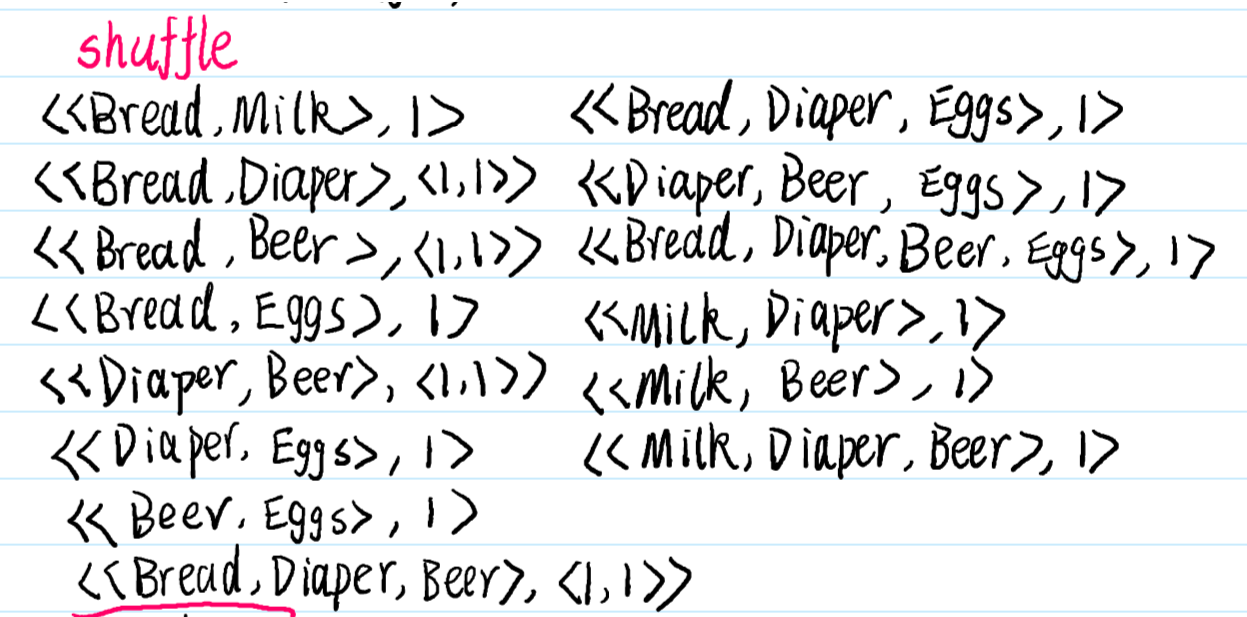 shuffle
<<Bread, Milk>, 1>
<<Bread, Diaper>, <1, 1>>
<<Bread, Beer>, <1, 1>>
<<Bread, Eggs>, 1>
<<Diaper, Beer>, <1, 1>>
<<Diaper, Eggs>, 1>
<<Beer, Eggs>, 1>
<<Bread, Diaper, Beer>, <1, 1>>
<<Bread, Diaper, Eggs>, 1>
<<Diaper, Beer, Eggs>, 1>
<<Bread, Diaper, Beer, Eggs>, 1>
<<Milk, Diaper>, 1>
<<Milk, Beer>, 1>
<<Milk, Diaper, Beer>, 1>